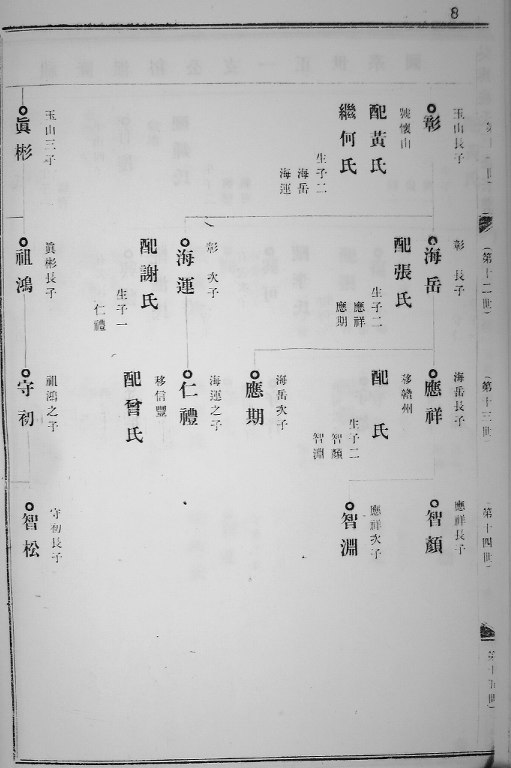 8
玉山長子
彰
號懷山
配黃氏
繼何氏
生子二
海岳
海運
玉山三子
眞彬
（第十二世）
彰 長子
海岳
配張氏
生子二
應祥
應期
彰 次子
海運
配謝氏
生子一
仁禮
眞彬長子
祖鴻
（第十三世
海岳長子
應祥
移贛州
配 氏
生子二
智顏
智淵
海岳次子
應期
海運之子
仁禮
移信豐
配曾氏
祖鴻之子
守初
（第十四世）
應祥長子
智顏
應祥次子
智淵
守初長子
智松